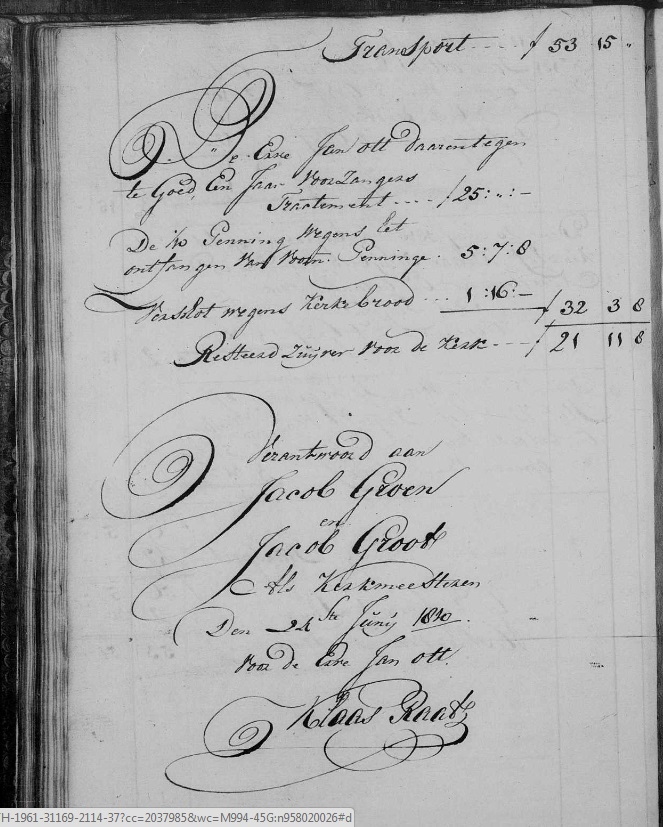 Transport - - - - ƒ 53 15 „
De Erve Jan Ott daarentegen
te Goed, Een Jaar Voorzangers
Tractement - - - - ƒ 25 : „ : —
De 10 Penning wegens het
ontfangen van voorn. Penninge . 5 : 7 : 8
Verschot wegens Kerkebrood - - - 1 : 16 : — ƒ 32 3 8
Resteerd Zuijver voor de Kerk - - - - ƒ 21 11 8
Verantwoord aan
Jacob Groen
en
Jacob Groot
Als Kerkmeesteren
Den 24ste Junij 1810.
voor de Erve Jan Ott.
Klaas Raat
H-1961-31169-2114-37?cc=2037985&wc=M994-45G:n958020026#d